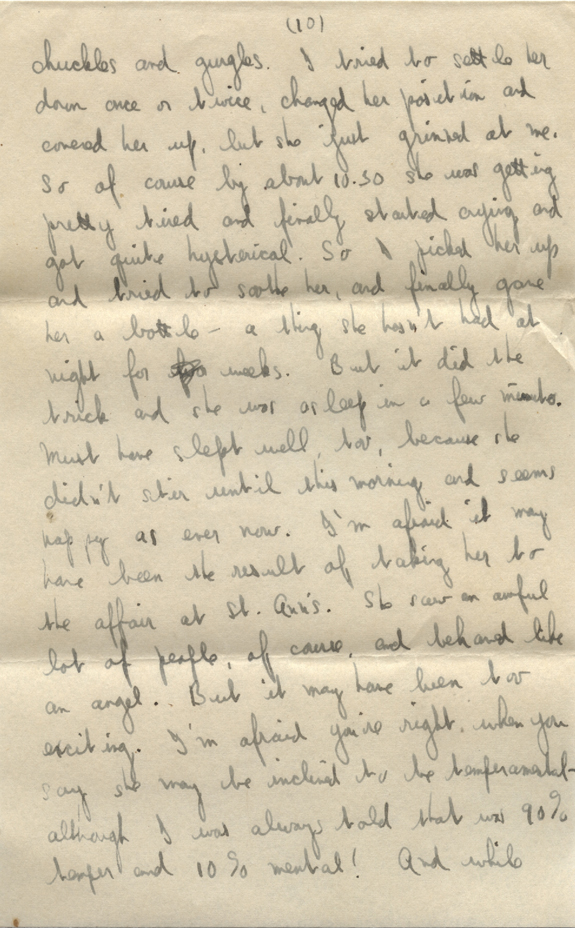 (10)
chuckles and gurgles. I tried to settle her
down once or twice, changed her position and
covered her up, but she just grinned at me.
So of course by about 10.30 she was getting
pretty tired and finally started crying and
got quite hysterical. So I picked her up
and tried to soothe her, and finally gave
her a bottle – a thing she hasn't had at
night for weeks. But it did the
trick and she was asleep in a few minutes.
Must have slept well, too, because she
didn't stir until this morning and seems
happy as ever now. I'm afraid it may
have been the result of taking her to
the affair at St. Ann's. She saw an awful
lot of people, of course, and behaved like
an angel.. But it may have been too
exciting. I'm afraid you're right, when you
say she may be inclined to be temperamental –
although I was always told that was 90%
temper and 10% mental! And while